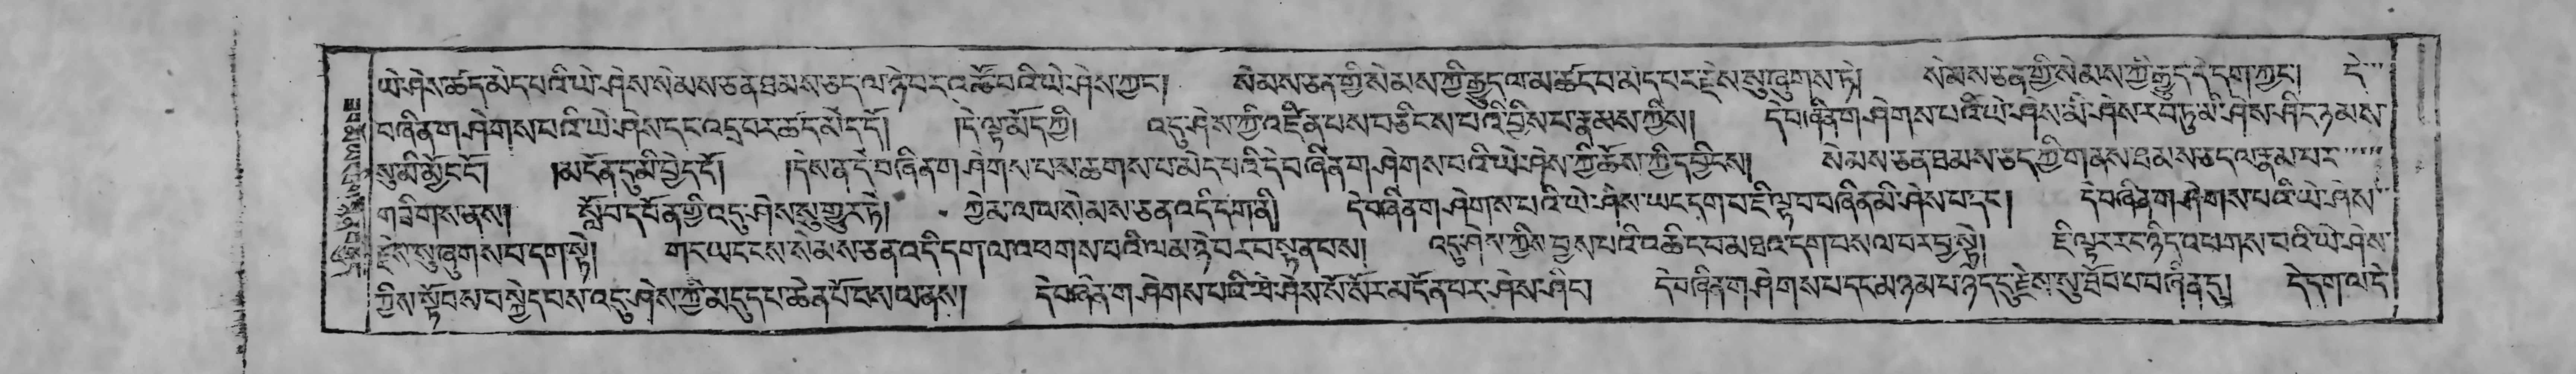 ཡེ་ཤེས་ཚད་མེད་པའི་ཡེ་ཤེས་སེམས་ཅན་ཐམས་ཅད་ལ་ཉེ་བར་འཚོ་བའི་ཡེ་ཤེས་ཀྱང་། སེམས་ཅན་གྱི་སེམས་ཀྱི་རྒྱུད་ལ་མ་ཚང་བ་མེད་པར་རྗེས་སུ་ཞུགས་ཏེ། སེམས་ཅན་གྱི་སེམས་ཀྱི་རྒྱུད་དེ་དག་ཀྱང་། དེ་
བཞིན་གཤེགས་པའི་ཡེ་ཤེས་དང་འདྲ་བར་ཚད་མེད་དོ། །དེ་ལྟ་མོད་ཀྱི། འདུ་ཤེས་ཀྱི་འཛིན་པས་བཅིངས་པའི་བྱིས་པ་རྣམས་ཀྱིས། དེ་བཞིན་གཤེགས་པའི་ཡེ་ཤེས་མི་ཤེས་རབ་ཏུ་མི་ཤེས་ཤིང་ཉམས་
སུ་མི་མྱོང་ངོ། །མངོན་དུ་མི་བྱེད་དོ། །དེས་ན་དེ་བཞིན་གཤེགས་པས་ཆགས་པ་མེད་པའི་དེ་བཞིན་གཤེགས་པའི་ཡེ་ཤེས་ཀྱི་ཆོས་ཀྱི་དབྱིངས། སེམས་ཅན་ཐམས་ཅད་ཀྱི་གནས་ཐམས་ཅད་ལ་རྣམ་པར་
གཟིགས་ནས། སློབ་དཔོན་གྱི་འདུ་ཤེས་སུ་གྱུར་ཏེ། ཀྱེ་མ་ལ་ལ་སེམས་ཅན་འདི་དག་ནི། དེ་བཞིན་གཤེགས་པའི་ཡེ་ཤེས་ཡང་དག་པ་ཇི་ལྟ་བ་བཞིན་མི་ཤེས་པ་དང་། དེ་བཞིན་གཤེགས་པའི་ཡེ་ཤེས་
རྗེས་སུ་ཞུགས་པ་དག་སྟེ། གང་ཡང་ངས་སེམས་ཅན་འདི་དག་ལ་འཕགས་པའི་ལམ་ཉེ་བར་བསྟན་པས། འདུ་ཤེས་ཀྱིས་བྱས་པའི་འཆིང་བ་མཐའ་དག་བསལ་བར་བྱ་སྟེ། ཇི་ལྟར་རང་ཉིད་འཕགས་པའི་ཡེ་ཤེས་
ཀྱིས་སྟོབས་བསྐྱེད་པས་འདུ་ཤེས་ཀྱི་མདུད་པ་ཆེན་པོ་བསལ་ནས། དེ་བཞིན་གཤེགས་པའི་ཡེ་ཤེས་སོ་སོར་མངོན་པར་ཤེས་ཤིང་། དེ་བཞིན་གཤེགས་པ་དང་མཉམ་པ་ཉིད་དུ་རྗེས་སུ་ཐོབ་པ་བཞིན་དུ། དེ་དག་ལ་དེ་